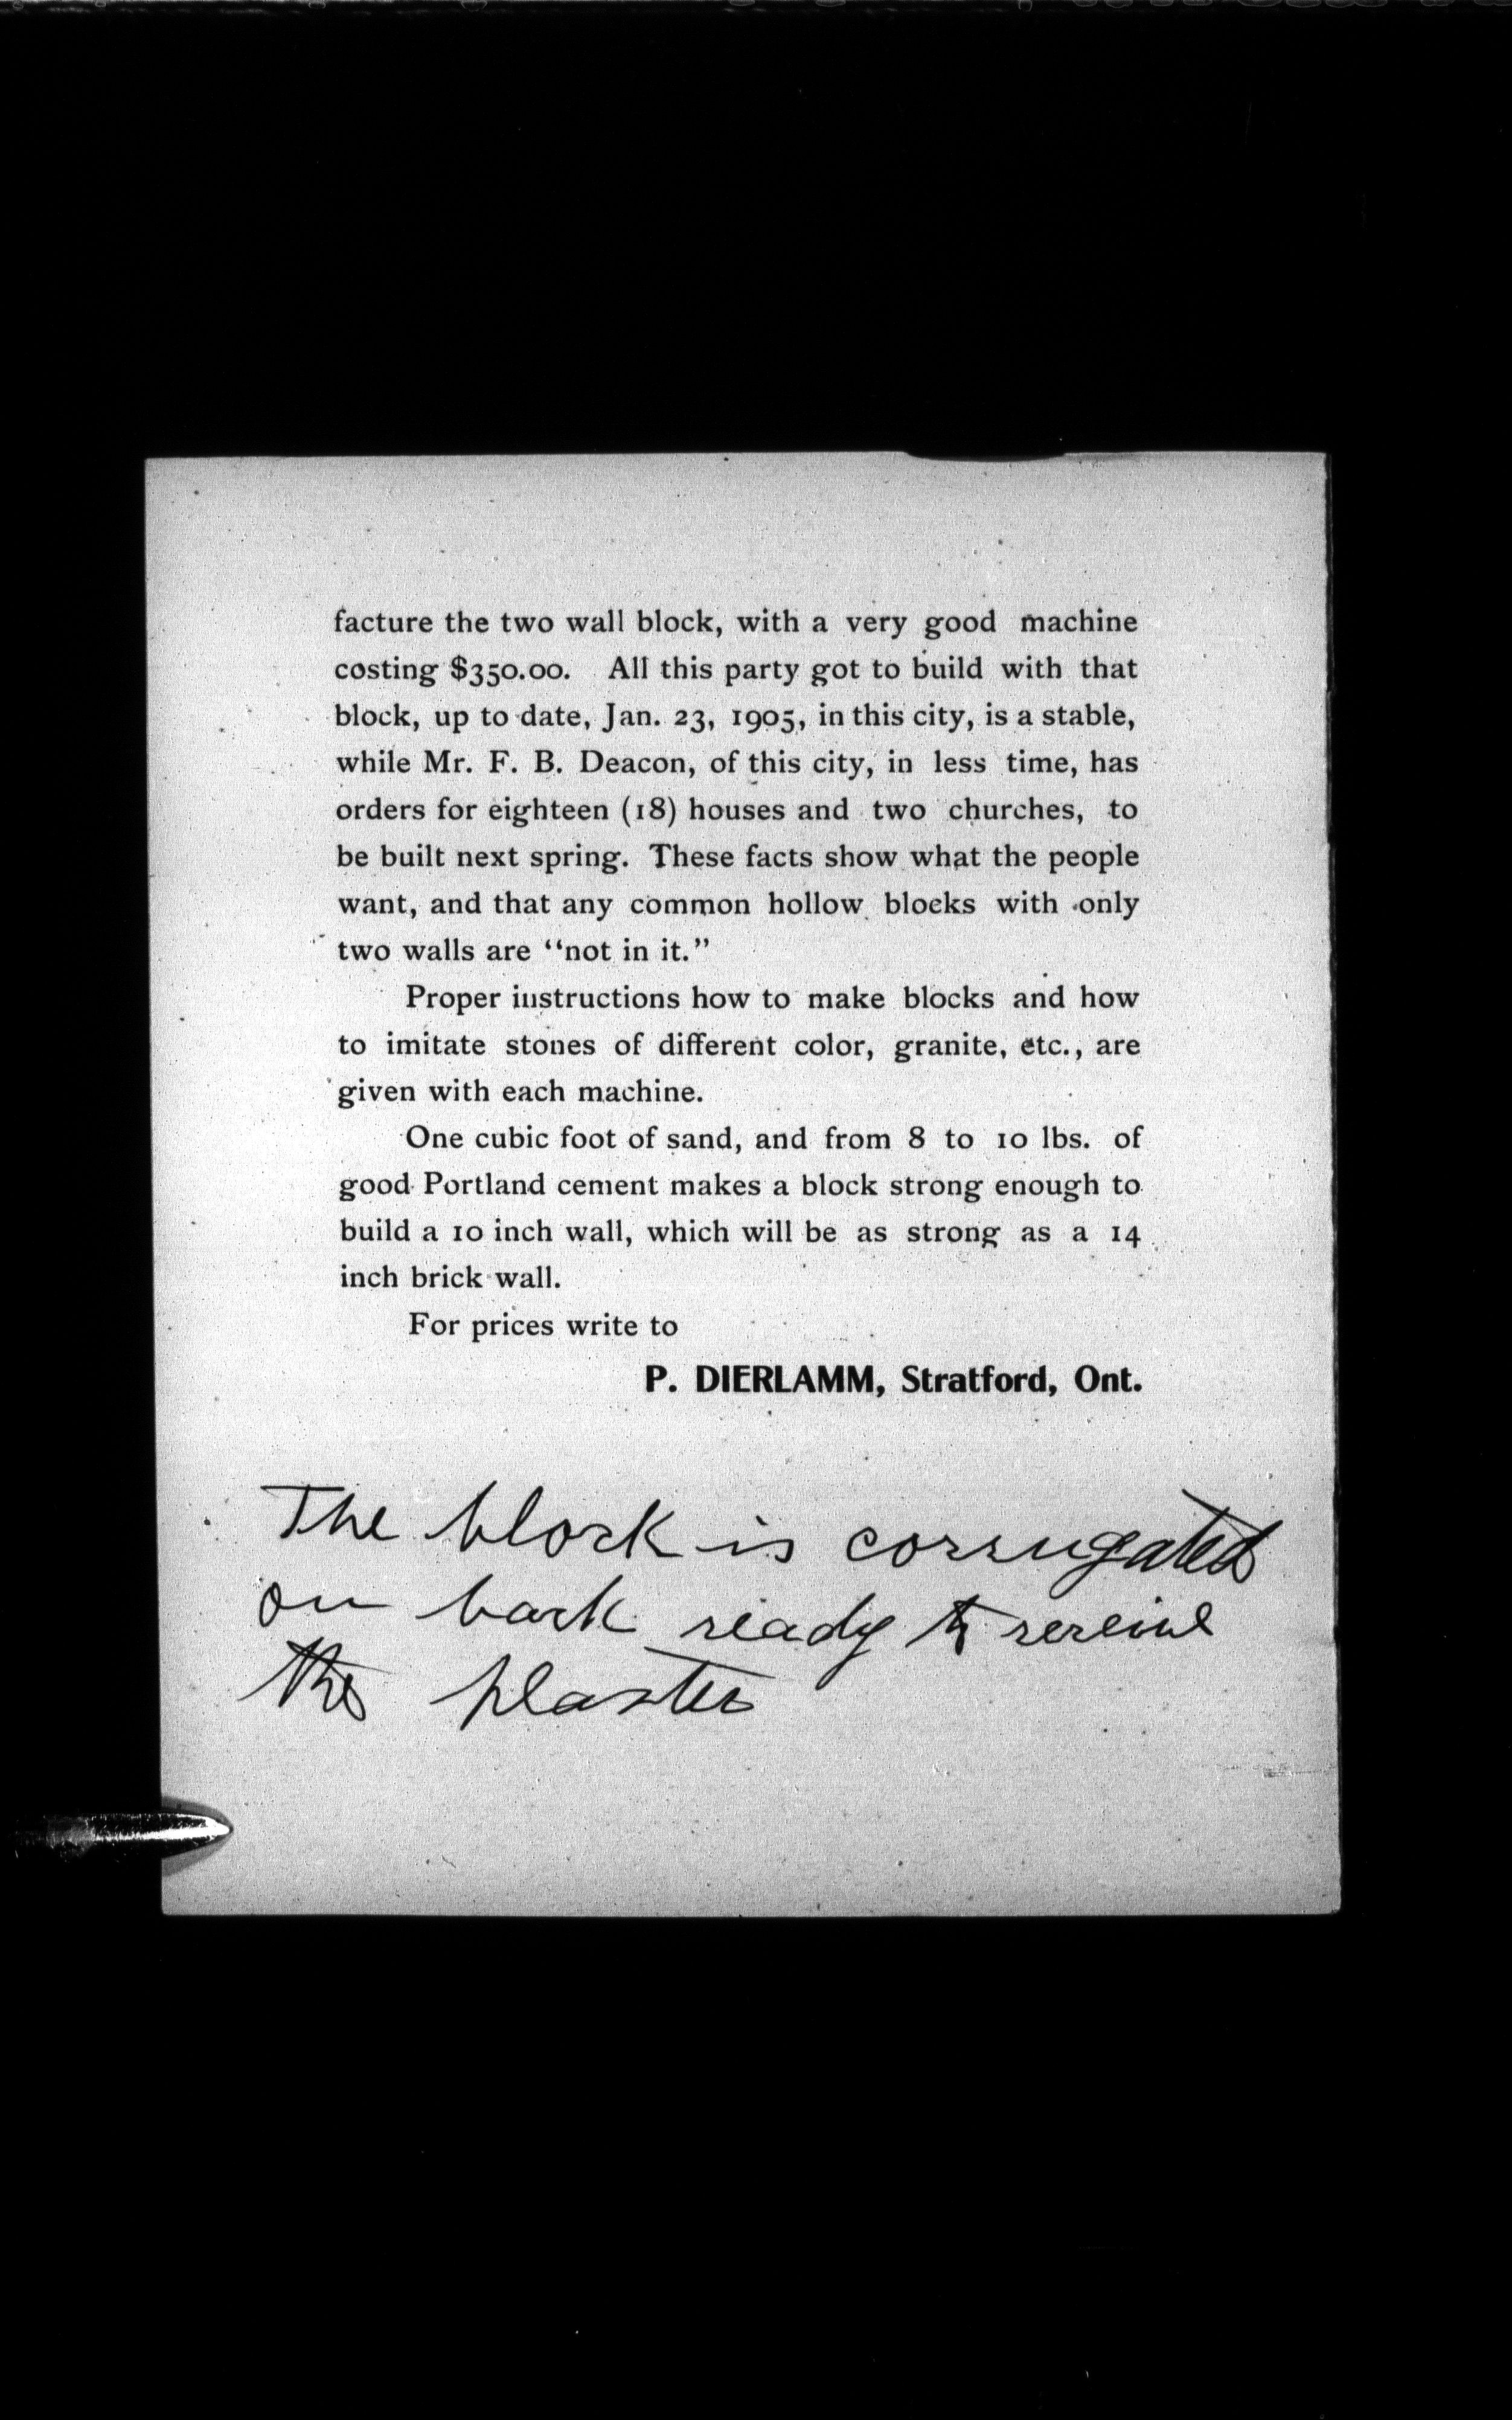 facture the two wall block, with a very good machine
costing $350.00. All this party got to build with that
block, up to date, Jan. 23, 1905, in this city, is a stable,
while Mr. F. B. Deacon, of this city, in less time, has
orders for eighteen (18) houses and two churches, to
be built next spring. These facts show what the people
want, and that any common hollow blocks with only
two walls are “not in it.”
Proper instructions how to make blocks and how
to imitate stones of different color, granite, etc., are
given with each machine.
One cubic foot of sand, and from 8 to 10 lbs. of
good Portland cement makes a block strong enough to
build a 10 inch wall, which will be as strong as a 14
inch brick wall.
For prices write to
P. DIERLAMM, Stratford, Ont.
The block is corrugated
on back ready to receive
the plaster